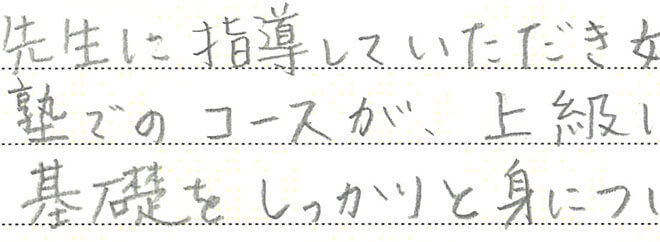 先生に指導していただき
塾でのコースが、上級
基礎をしっかりと身につ